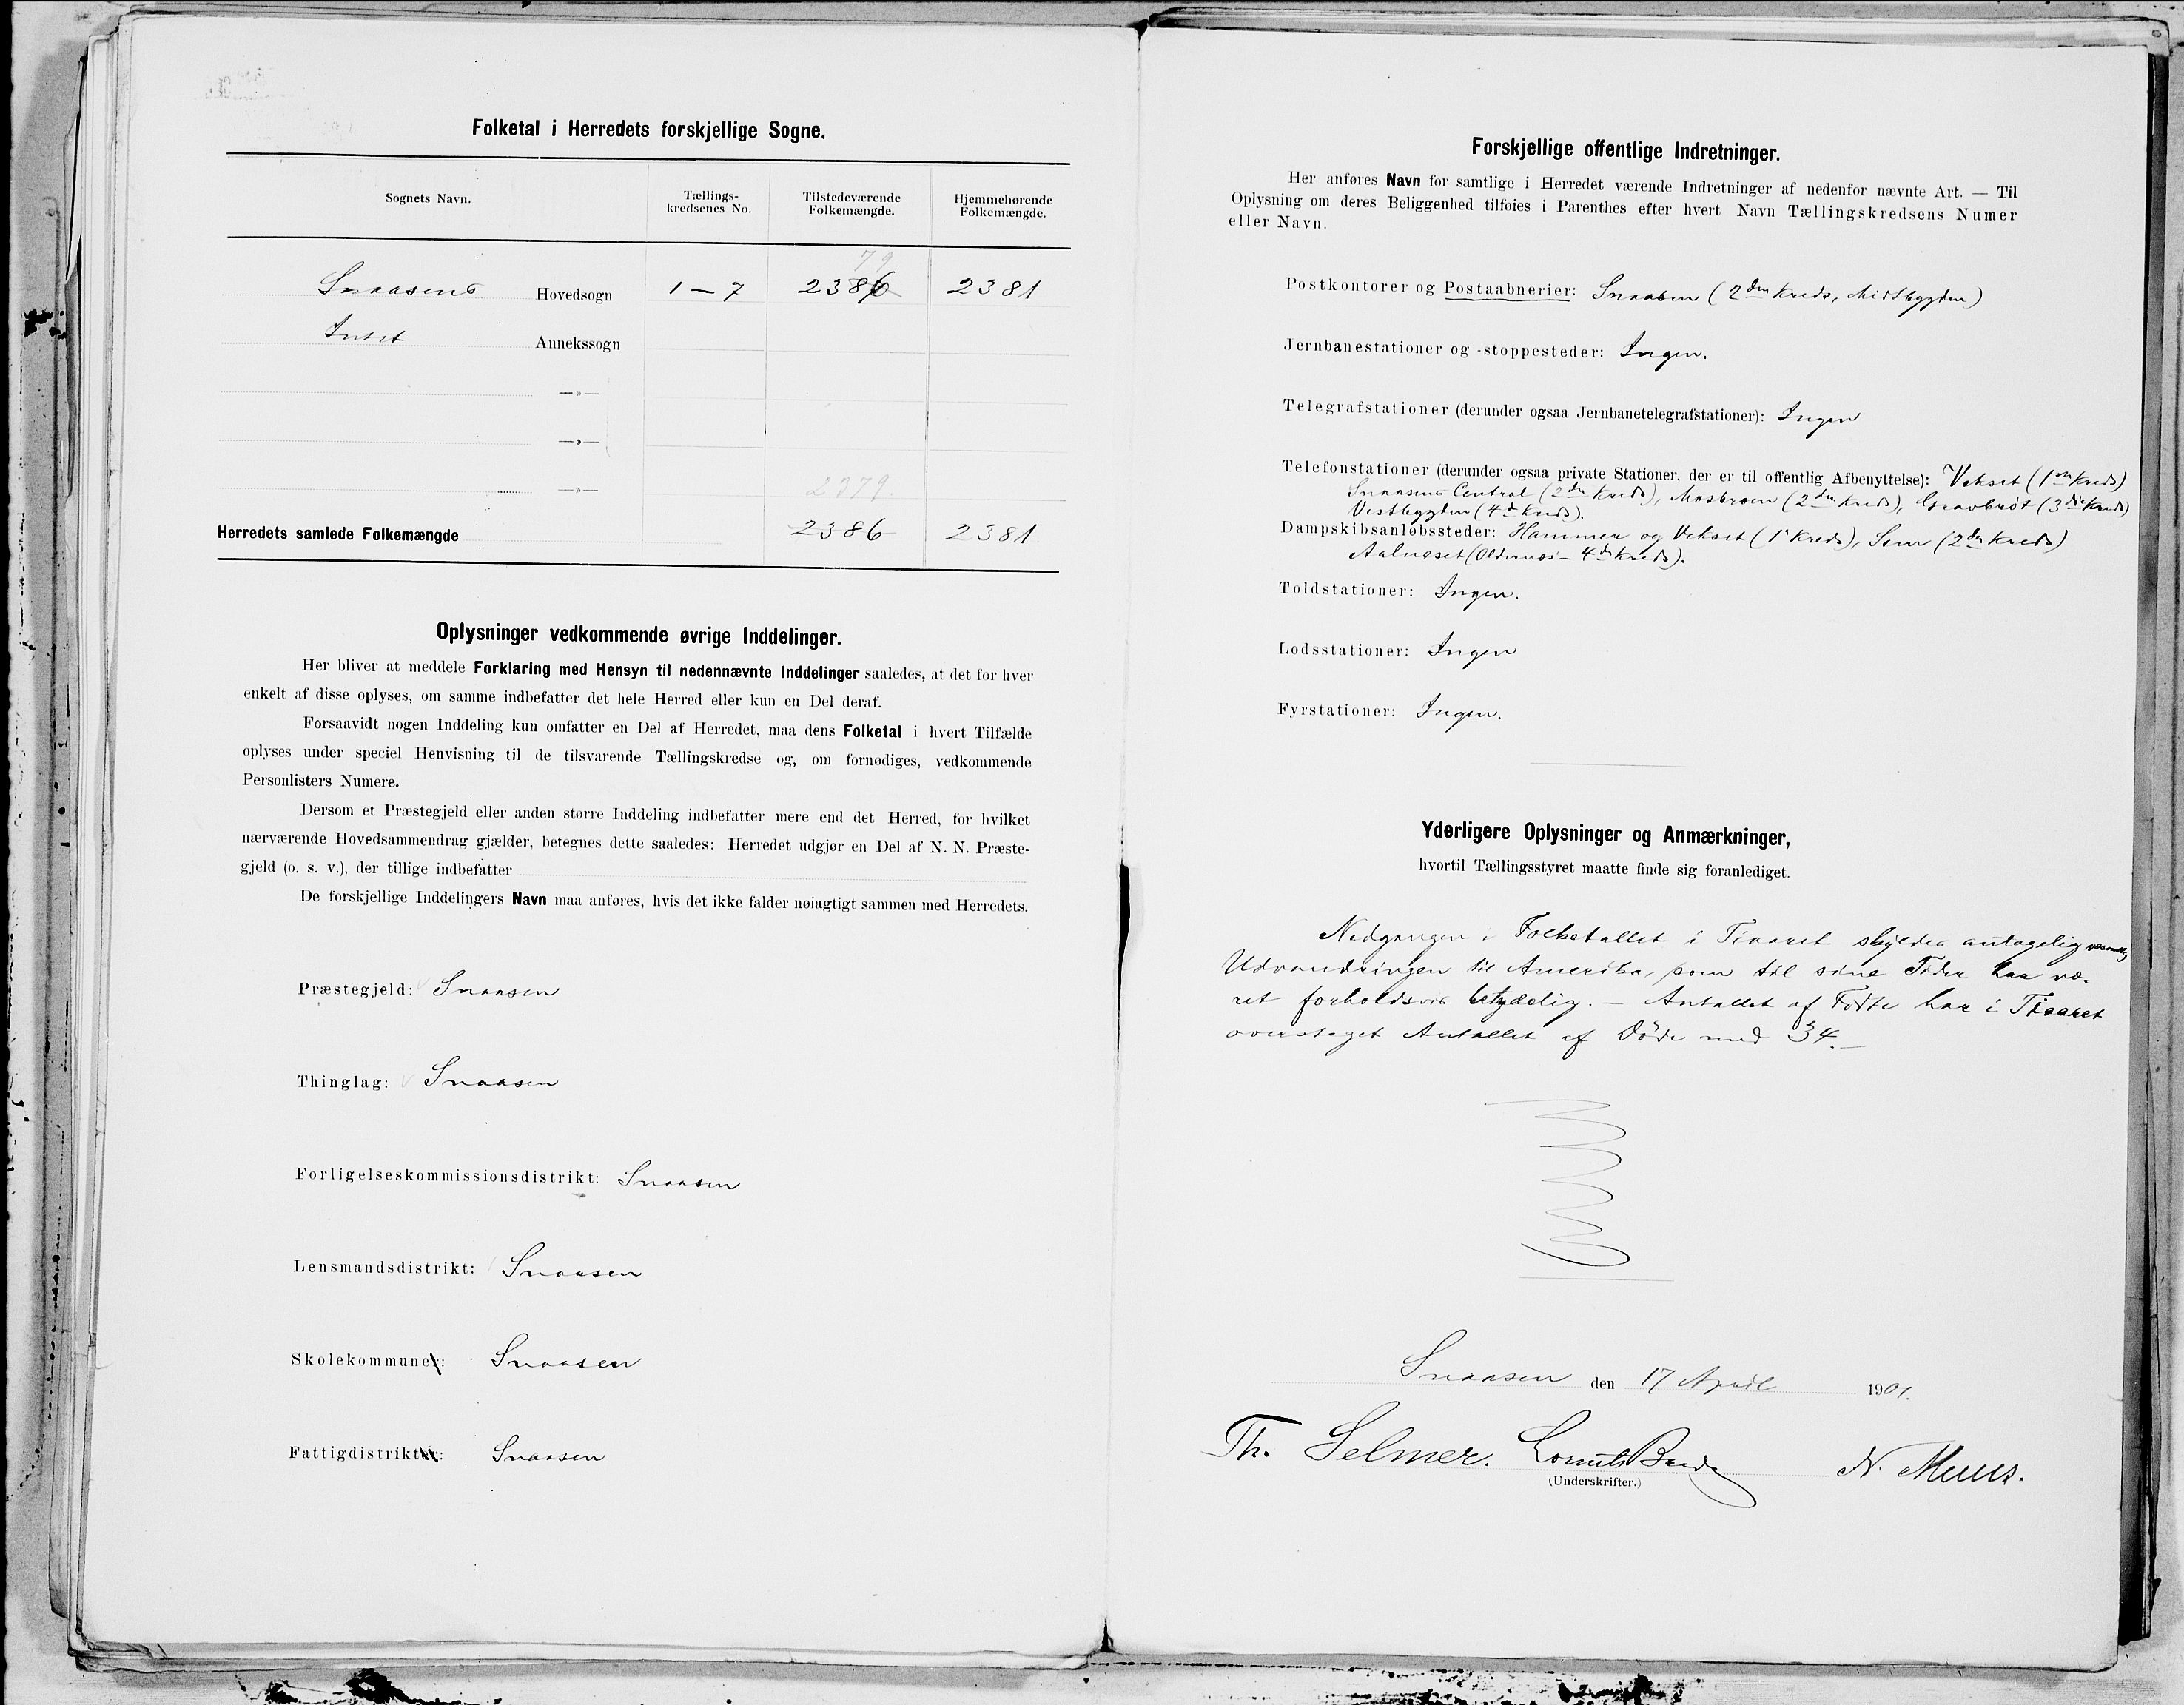 Folketal i Herredets forskjellige Sogne.
Sognets Navn.
Tællings-
kredsenes No.
Tilstedeværende
Folkemængde.
Hjemmehørende
Folkemængde.
79
Snaasens Hovedsogn 1 — 7 2386 2381
Annekssogn
—»—
—»—
—»— 2379.
Herredets samlede Folkemængde 2386 2381
Oplysninger vedkommende øvrige Inddelinger.
Her bliver at meddele Forklaring med Hensyn til nedennævnte Inddelinger saaledes, at det for hver
enkelt af disse oplyses, om samme indbefatter det hele Herred eller kun en Del deraf.
Forsaavidt nogen Inddeling kun omfatter en Del af Herredet, maa dens Folketal i hvert Tilfælde
oplyses under speciel Henvisning til de tilsvarende Tællingskredse og, om fornødiges, vedkommende
Personlisters Numere.
Dersom et Præstegjeld eller anden større Inddeling indbefatter mere end det Herred, for hvilket
nærværende Hovedsammendrag gjælder, betegnes dette saaledes: Herredet udgjør en Del af N. N. Præste-
gjeld (o. s. v.), der tillige indbefatter
De forskjellige Inddelingers Navn maa anføres, hvis det ikke falder nøiagtigt sammen med Herredets.
Præstegjeld: Snaasen
Thinglag: Snaasen
Forligelseskommissionsdistrikt: Snaasen
Lensmandsdistrikt: Snaasen
Skolekommuner: Snaasen
Fattigdistrikter: Snaasen
Forskjellige offentlige Indretninger.
Her anføres Navn for samtlige i Herredet værende Indretninger af nedenfor nævnte Art. — Til
Oplysning om deres Beliggenhed tilføies i Parenthes efter hvert Navn Tællingskredsens Numer
eller Navn.
Postkontorer og Postaabnerier: Snaasen (2den Kreds, Midtbygden)
Jernbanestationer og -stoppesteder: Ingen.
Telegrafstationer (derunder ogsaa Jernbanetelegrafstationer): Ingen
Telefonstationer (derunder ogsaa private Stationer, der er til offentlig Afbenyttelse): Vekset (1ste Kreds)
Snaasens Central (2den Kreds), (2den Kreds), (3die Kreds)
Vestbygden (4de Kreds).
Dampskibsanløbssteder: Hammer og Vekset (1 Kreds), Sem (2den Kreds)
(4de Kreds).
Toldstationer: Ingen.
Lodsstationer: Ingen
Fyrstationer: Ingen.
Yderligere Oplysninger og Anmærkninger,
hvortil Tællingsstyret maatte finde sig foranlediget.
Nedgangen i Folketallet i Tiaaret skyldes antagelig væsentlig
Udvandringen til Amerika, som til sine Tider har væ-
ret forholdsvis betydelig. — Antallet af Fødte har i Tiaaret
oversteget Antallet af Døde med 34. —
Snaasen den 17 April 1901.
Th. Selmer. N. Muus.
(Underskrifter.)